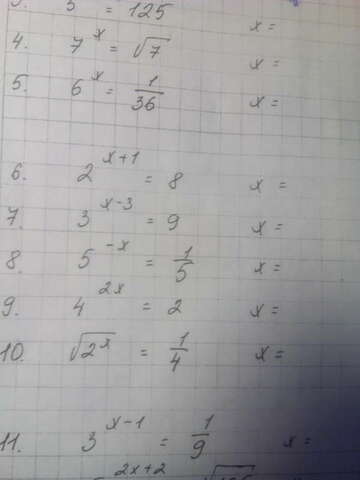 = 125 x =
4. 7^x = √7 x =
5. 6^x = 1/36 x =
6. 2^(x+1) = 8 x =
7. 3^(x-3) = 9 x =
8. 5^(-x) = 1/5 x =
9. 4^(2x) = 2 x =
10. √(2^x) = 1/4 x =
11. 3^(x-1) = 1/9 x =
2x+2